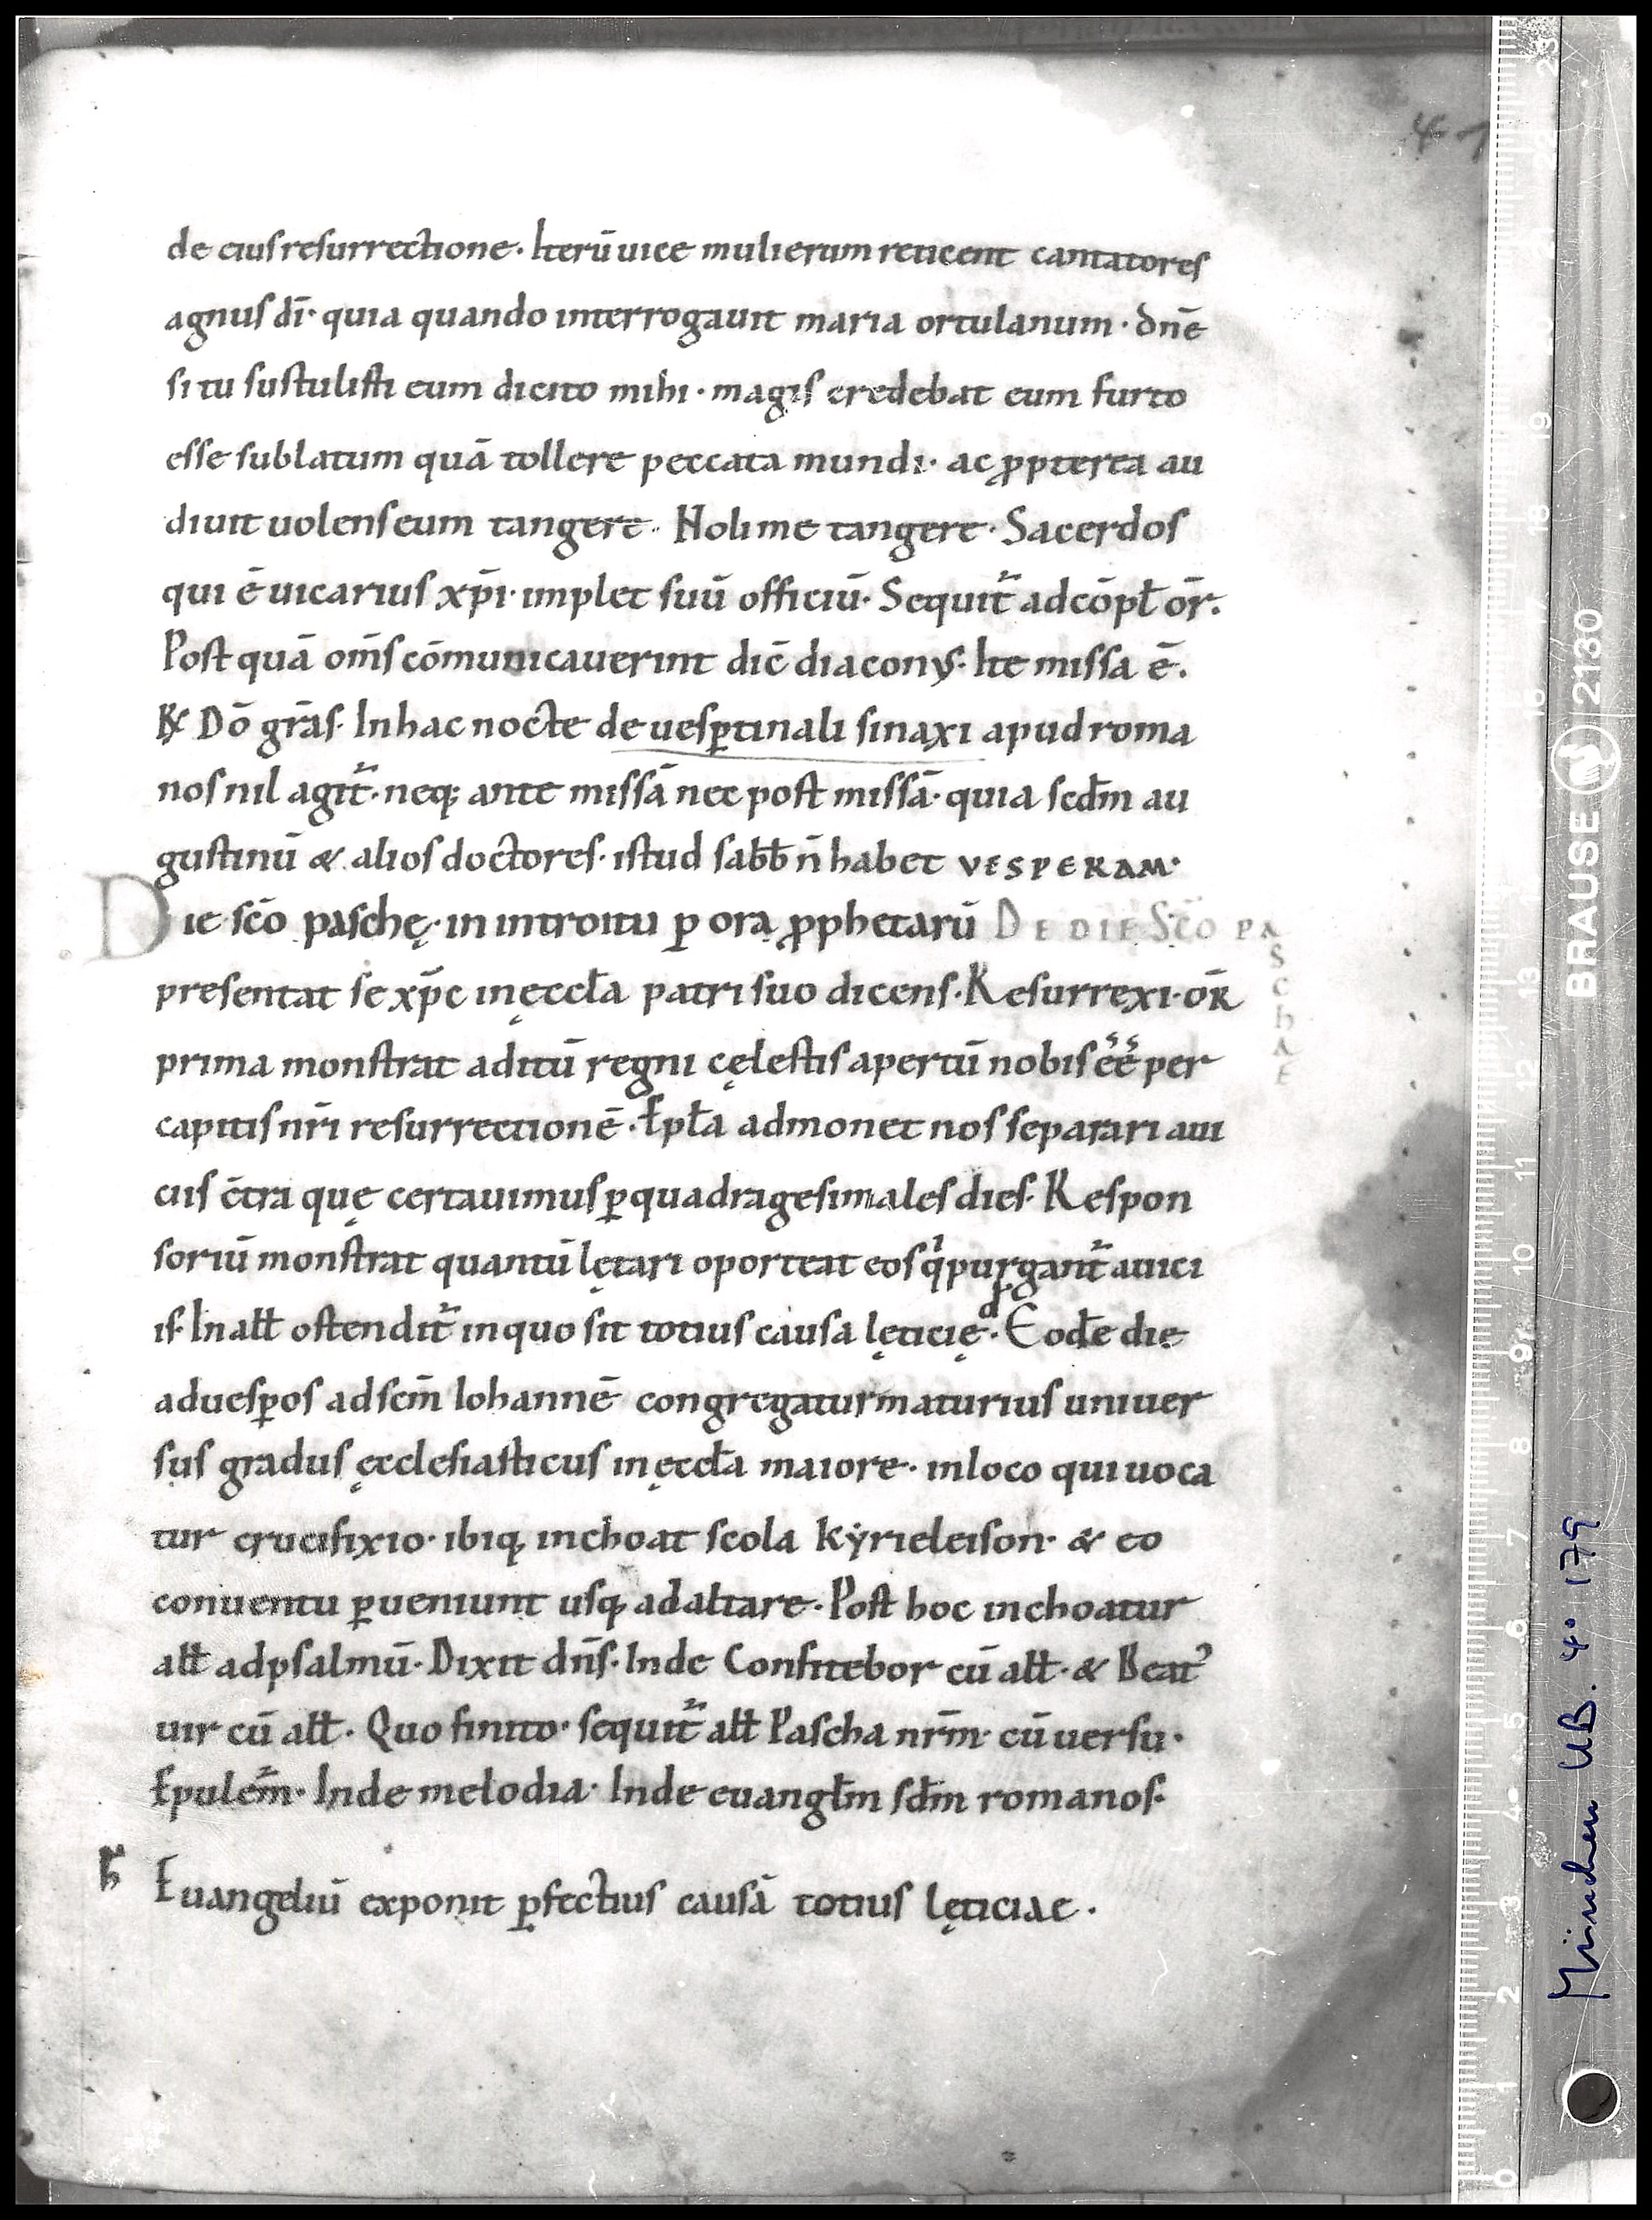 4 1
de eius resurrectione. Iterū uice mulierum reticent cantatores
agnus dī. quia quando interrogauit maria ortulanum. dn̄e
si tu sustulisti eum dicito mihi. magis credebat eum furto
esse sublatum quā tollere peccata mundi. ac ꝓpterea au
diuit uolens eum tangere. Noli me tangere. Sacerdos
qui ē uicarius xp̄i. implet suū officiū. Sequit᷑ ad cōpƚ or̄.
Post quā om̄s cōmunicauerint dic̄ diaconus. Ite missa ē.
℟ Dō grās. In hac nocte de uesꝑtinali sinaxi apud roma
nos nil agit᷑. neq; ante missā nec post missā. quia scđm au
gustinū & alios doctores. istud sabƀ n̄ habet VESPERAM.
Die sc̄o paschę. in introitu ꝑ ora ꝓphetarū DE DIE SC̄O PASCHAE
presentat se xp̄c in ęccƚa patri suo dicens. Resurrexi. OR̄
prima monstrat aditū regni cęlestis apertū nobis ēē per
capitis nr̄i resurrectionē. Epƚa admonet nos separari a ui
ciis c̄tra quę certauimus ꝑ quadragesimales dies. Respon
soriū monstrat quantū lętari oporteat eos qͥ purgant᷑ a uici
is. In aƚƚ ostendit᷑ in quo sit totius causa lęticię. Eođe die
ad uesꝑos ad scm̄ Iohannē congregatur maturius uniuer
sus gradus ęcclesiasticus in ęccƚa maiore. in loco qui uoca
tur crucifixio. ibiq; inchoat scola kẏrieleison. & eo
conuentu ꝑueniunt usq; ad altare. Post hoc inchoatur
aƚƚ ad psalmū. Dixit dn̄s. Inde Confitebor cū aƚƚ. & Beatꝰ
uir cū aƚƚ. Quo finito. sequit᷑ aƚƚ Pascha nr̄m. cū uersu.
Epulem᷑. Inde melodia. Inde euangƚm sđm romanos.
ħ Euangeliū exponit ꝑfectius causā totius lęticiae.
BRAUSE 2130
München UB. 4° 179
0 1 2 3 4 5 6 7 8 9 10 11 12 13